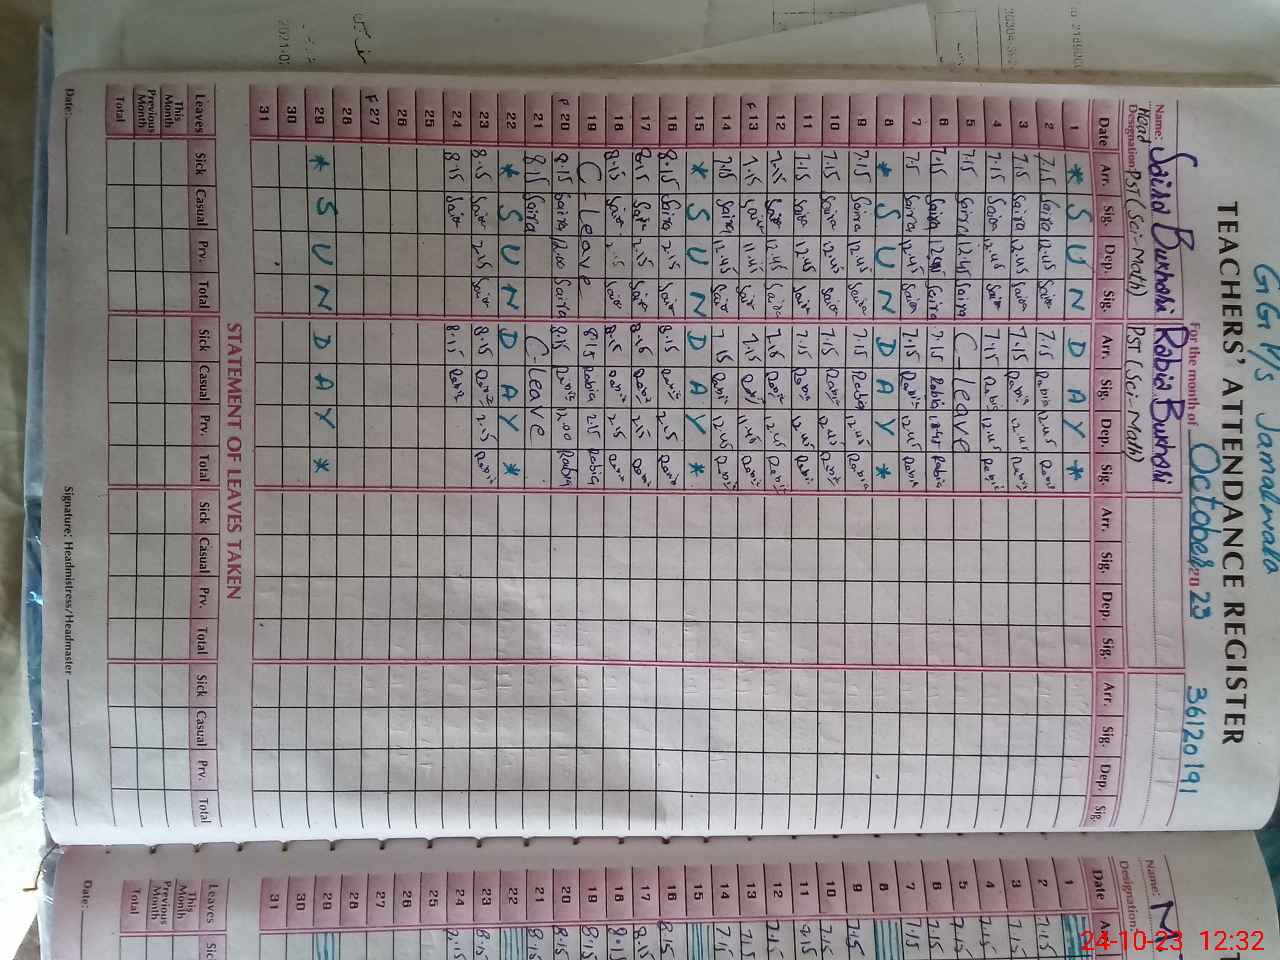 GGP/S Jamalwala
TEACHERS' ATTENDANCE REGISTER
For the month of October 2023 36120191
Name: Saira Bukhari Rabia Bukhari
Head
Designation PST (Sci-Math) PST (Sci-Math)
Date Arr. Sig. Dep. Sig. Arr. Sig. Dep. Sig. Arr. Sig. Dep. Sig. Arr. Sig. Dep. Sig.
1 * S U N D A Y *
2 7.15 Saira 12.45 Saira 7.15 Rabia 12.45 Rabia
3 7.15 Saira 12.45 Saira 7.15 Rabia 12.45 Rabia
4 7.15 Saira 12.45 Saira 7.15 Rabia 12.45 Rabia
5 7.15 Saira 12.45 Saira C-leave
6 7.15 Saira 12.45 Saira 7.15 Rabia 12.45 Rabia
7 7.15 Saira 12.45 Saira 7.15 Rabia 12.45 Rabia
8 * S U N D A Y *
9 7.15 Saira 12.45 Saira 7.15 Rabia 12.45 Rabia
10 7.15 Saira 12.45 Saira 7.15 Rabia 12.45 Rabia
11 7.15 Saira 12.45 Saira 7.15 Rabia 12.45 Rabia
12 7.15 Saira 12.45 Saira 7.15 Rabia 12.45 Rabia
F 13 7.15 Saira 11.45 Saira 7.15 Rabia 11.45 Rabia
14 7.15 Saira 12.45 Saira 7.15 Rabia 12.45 Rabia
15 * S U N D A Y *
16 8.15 Saira 2.15 Saira 8.15 Rabia 2.15 Rabia
17 8.15 Saira 2.15 Saira 8.15 Rabia 2.15 Rabia
18 8.15 Saira 2.15 Saira 8.15 Rabia 2.15 Rabia
19 C-leave 8.15 Rabia 2.15 Rabia
F 20 8.15 Saira 12.00 Saira 8.15 Rabia 12.00 Rabia
21 8.15 Saira C-leave
22 * S U N D A Y *
23 8.15 Saira 2.15 Saira 8.15 Rabia 2.15 Rabia
24 8.15 Saira 8.15 Rabia
25
26
F 27
28
29 * S U N D A Y *
30
31
STATEMENT OF LEAVES TAKEN
Leaves Sick Casual Prv. Total Sick Casual Prv. Total Sick Casual Prv. Total Sick Casual Prv. Total
This Month
Previous Month
Total
Date: Signature: Headmistress/Headmaster
Name: M
Designation
Date A
1
2 7.15
3 7.15
4 7.15
5 7.15
6 7.15
7 7.15
8
9 7.15
10 7.15
11
12 7.15
13 7.15
14 7.15
15
16 8.15
17 8.15
18 8.15
19 8.15
20 8.15
21 8.15
22
23 8.15
24
25
26
27
28
29
30
31
Leaves Sic
This Month
Previous Month
Total
Date:
24-10-23 12:32